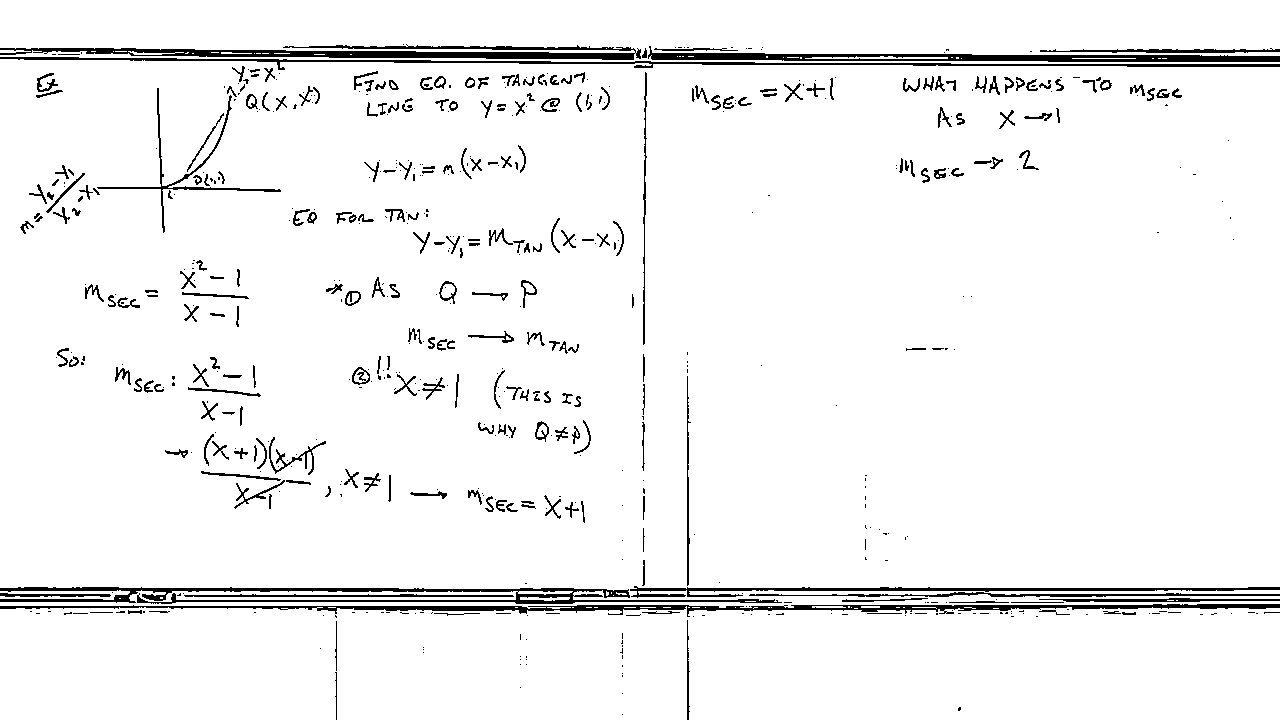 Ex
y=x²
Q(x,x²)
P(1,1)
m = y₂-y₁ / x₂-x₁
FIND EQ. OF TANGENT
LINE TO y=x² @ (1,1)
y-y₁ = m(x-x₁)
EQ FOR TAN:
y-y₁ = m_TAN (x-x₁)
m_SEC = x²-1 / x-1
* ① AS Q → P
m_SEC → m_TAN
So: m_SEC : x²-1 / x-1
② !! x≠1 (THIS IS
WHY Q≠P)
→ (x+1)(x-1) / x-1 , x≠1 → m_SEC = x+1
m_SEC = x+1
WHAT HAPPENS TO m_SEC
AS x→1
m_SEC → 2